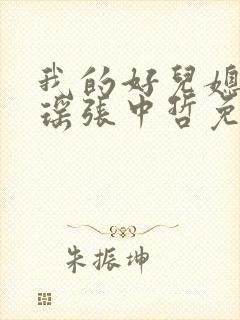 我的好兒媳
瑤張中哲免
朱振坤